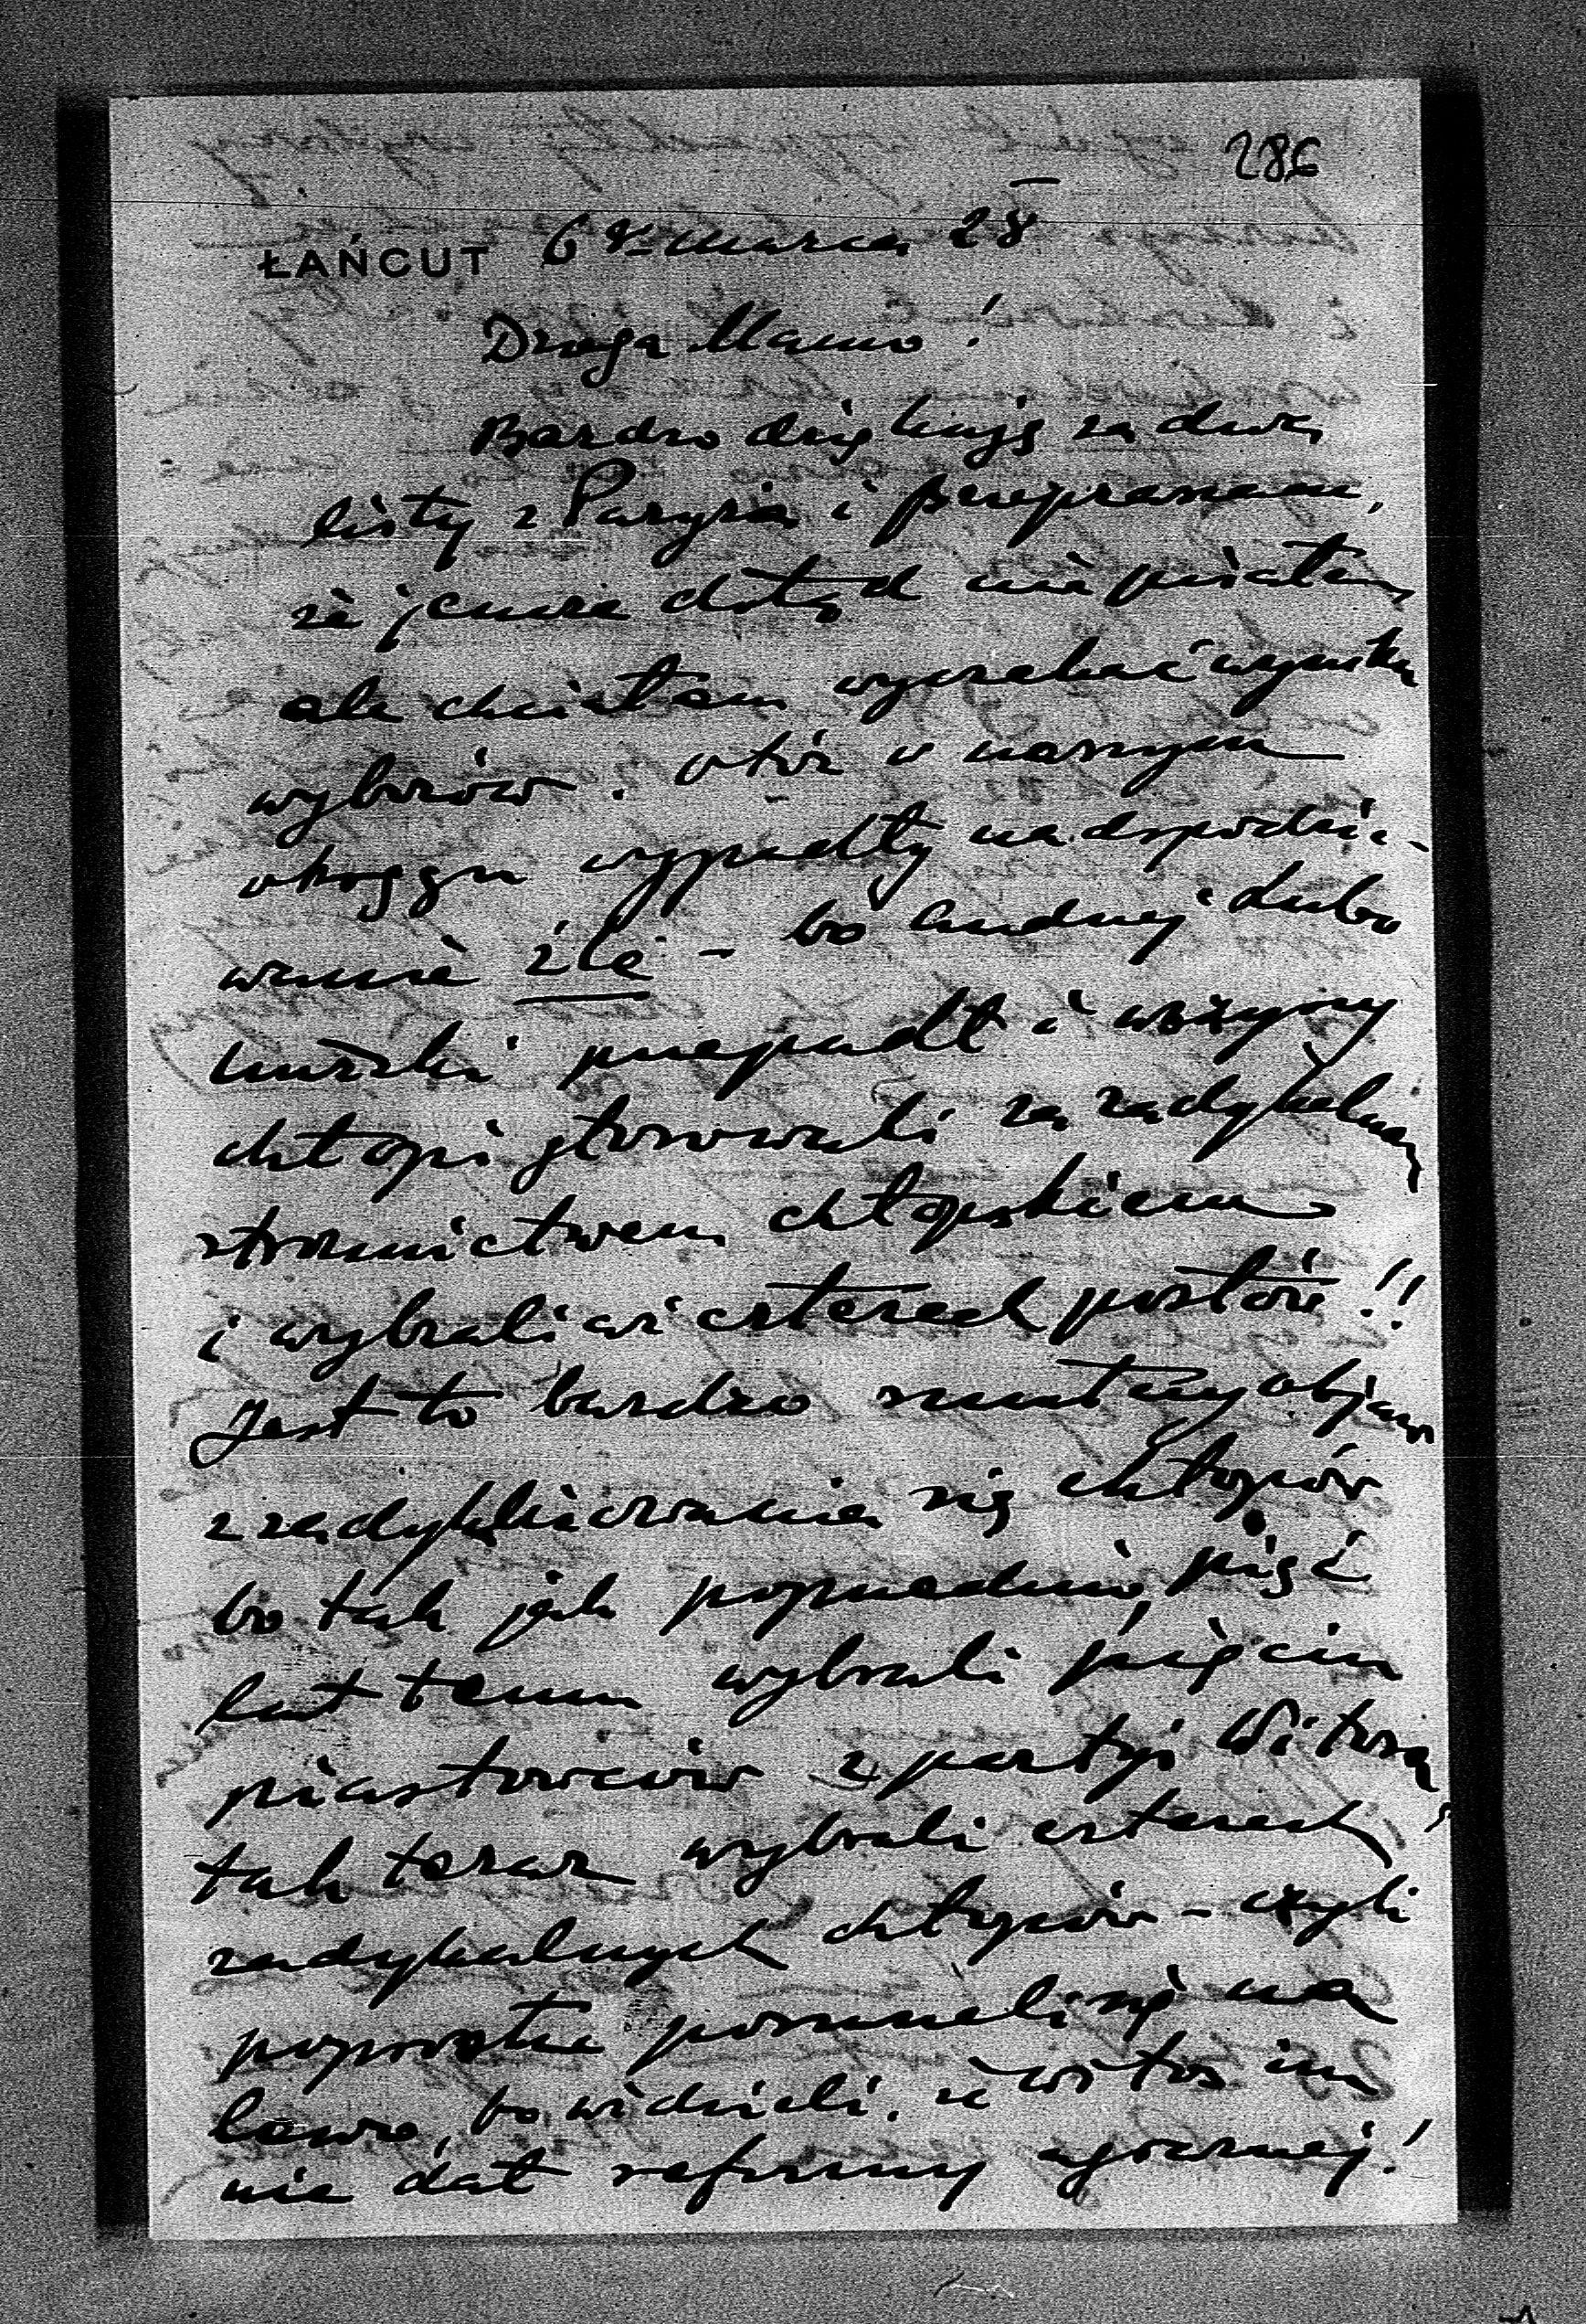 286
ŁAŃCUT 6 marca 28
Droga Mamo!
Bardzo dziękuję za dwa
listy z Paryża i przepraszam,
że jeszcze dotąd nie pisałem
ale chciałem wyczekać wyniku
wyborów. Otóż w naszym
okręgu wypadły nadspodzie-
wanie źle - bo Andrzej Lubo
mirski przepadł i wszyscy
chłopi głosowali za radykalnem
stronnictwem chłopskiem
i wybrali aż czterech posłów!!
Jest to bardzo smutny objaw
zradykalizowania się chłopów
bo tak jak poprzednio, pięć
lat temu wybrali pięciu
piastowców z partyi Witosa,
tak teraz wybrali czterech
radykalnych chłopów - czyli
poprostu posunęli się na
lewo, bo widzieli, że Witos im
nie dał reformy agrarnej!